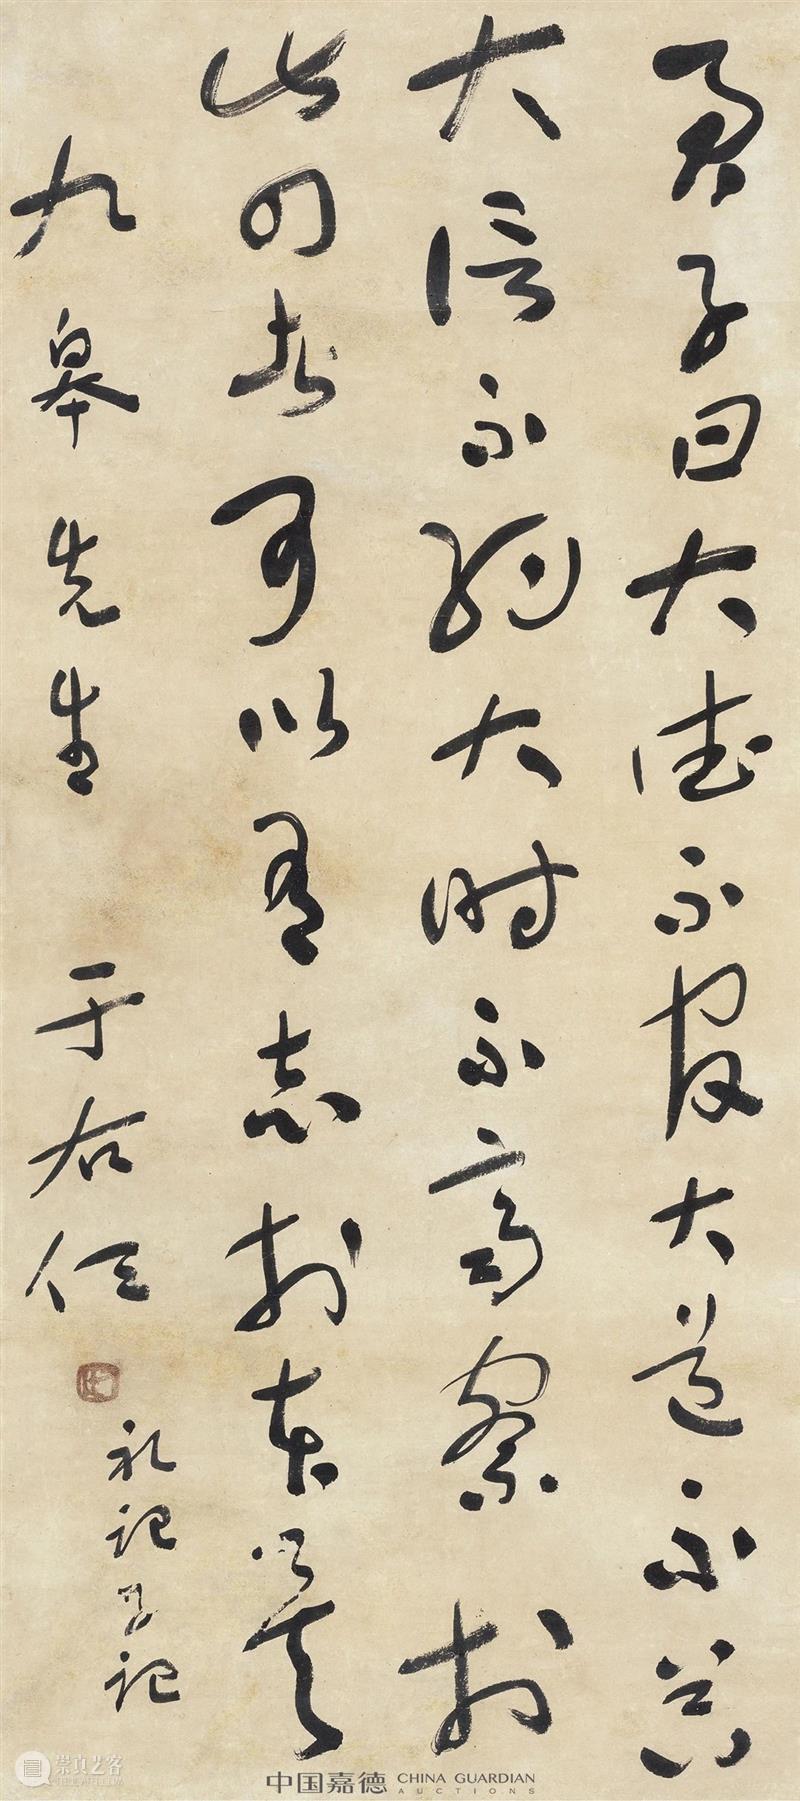 君子曰大德不官大道不器
大信不約大時不齊察於
此四者可以有志於本矣
九皋先生 于右任
礼記學記
崇真艺客
中国嘉德 CHINA GUARDIAN
AUCTIONS